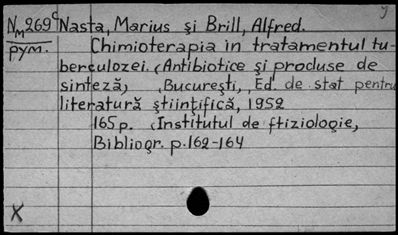 y
NM269c Nasta, Marius şi Brill, Alfred.
рум. Chimioterapia in tratamentul tu-
berculozei. (Antibiotice şi produse de
sinteză, (Bucureşti, Ed. de stat pentru
literatură ştiinţifică, 1952
165 p. (Institutul de ftiziologie,
Bibliogr. p.162-164
X